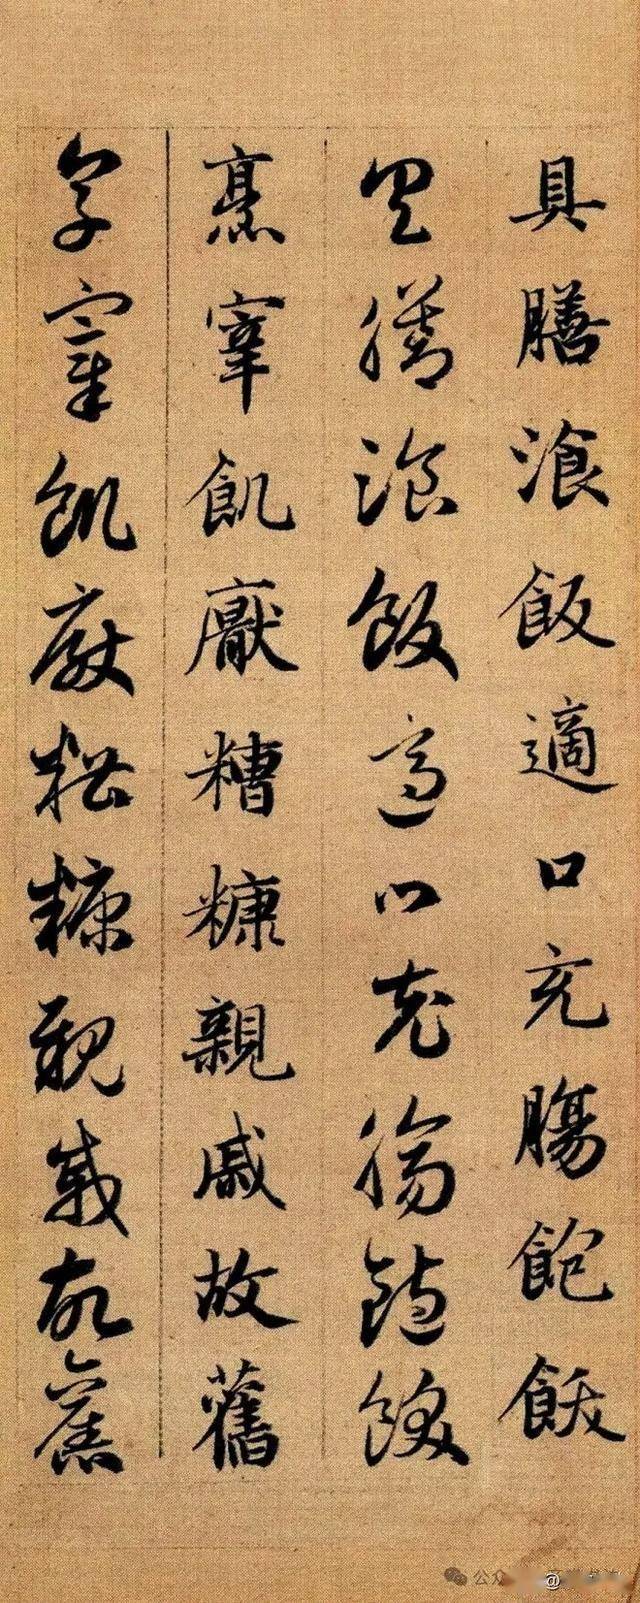 具膳湌飯適口充腸飽飫
具膳湌飯適口充腸飽飫
烹宰飢厭糟糠親戚故舊
烹宰飢厭糟糠親戚故舊
公众
@